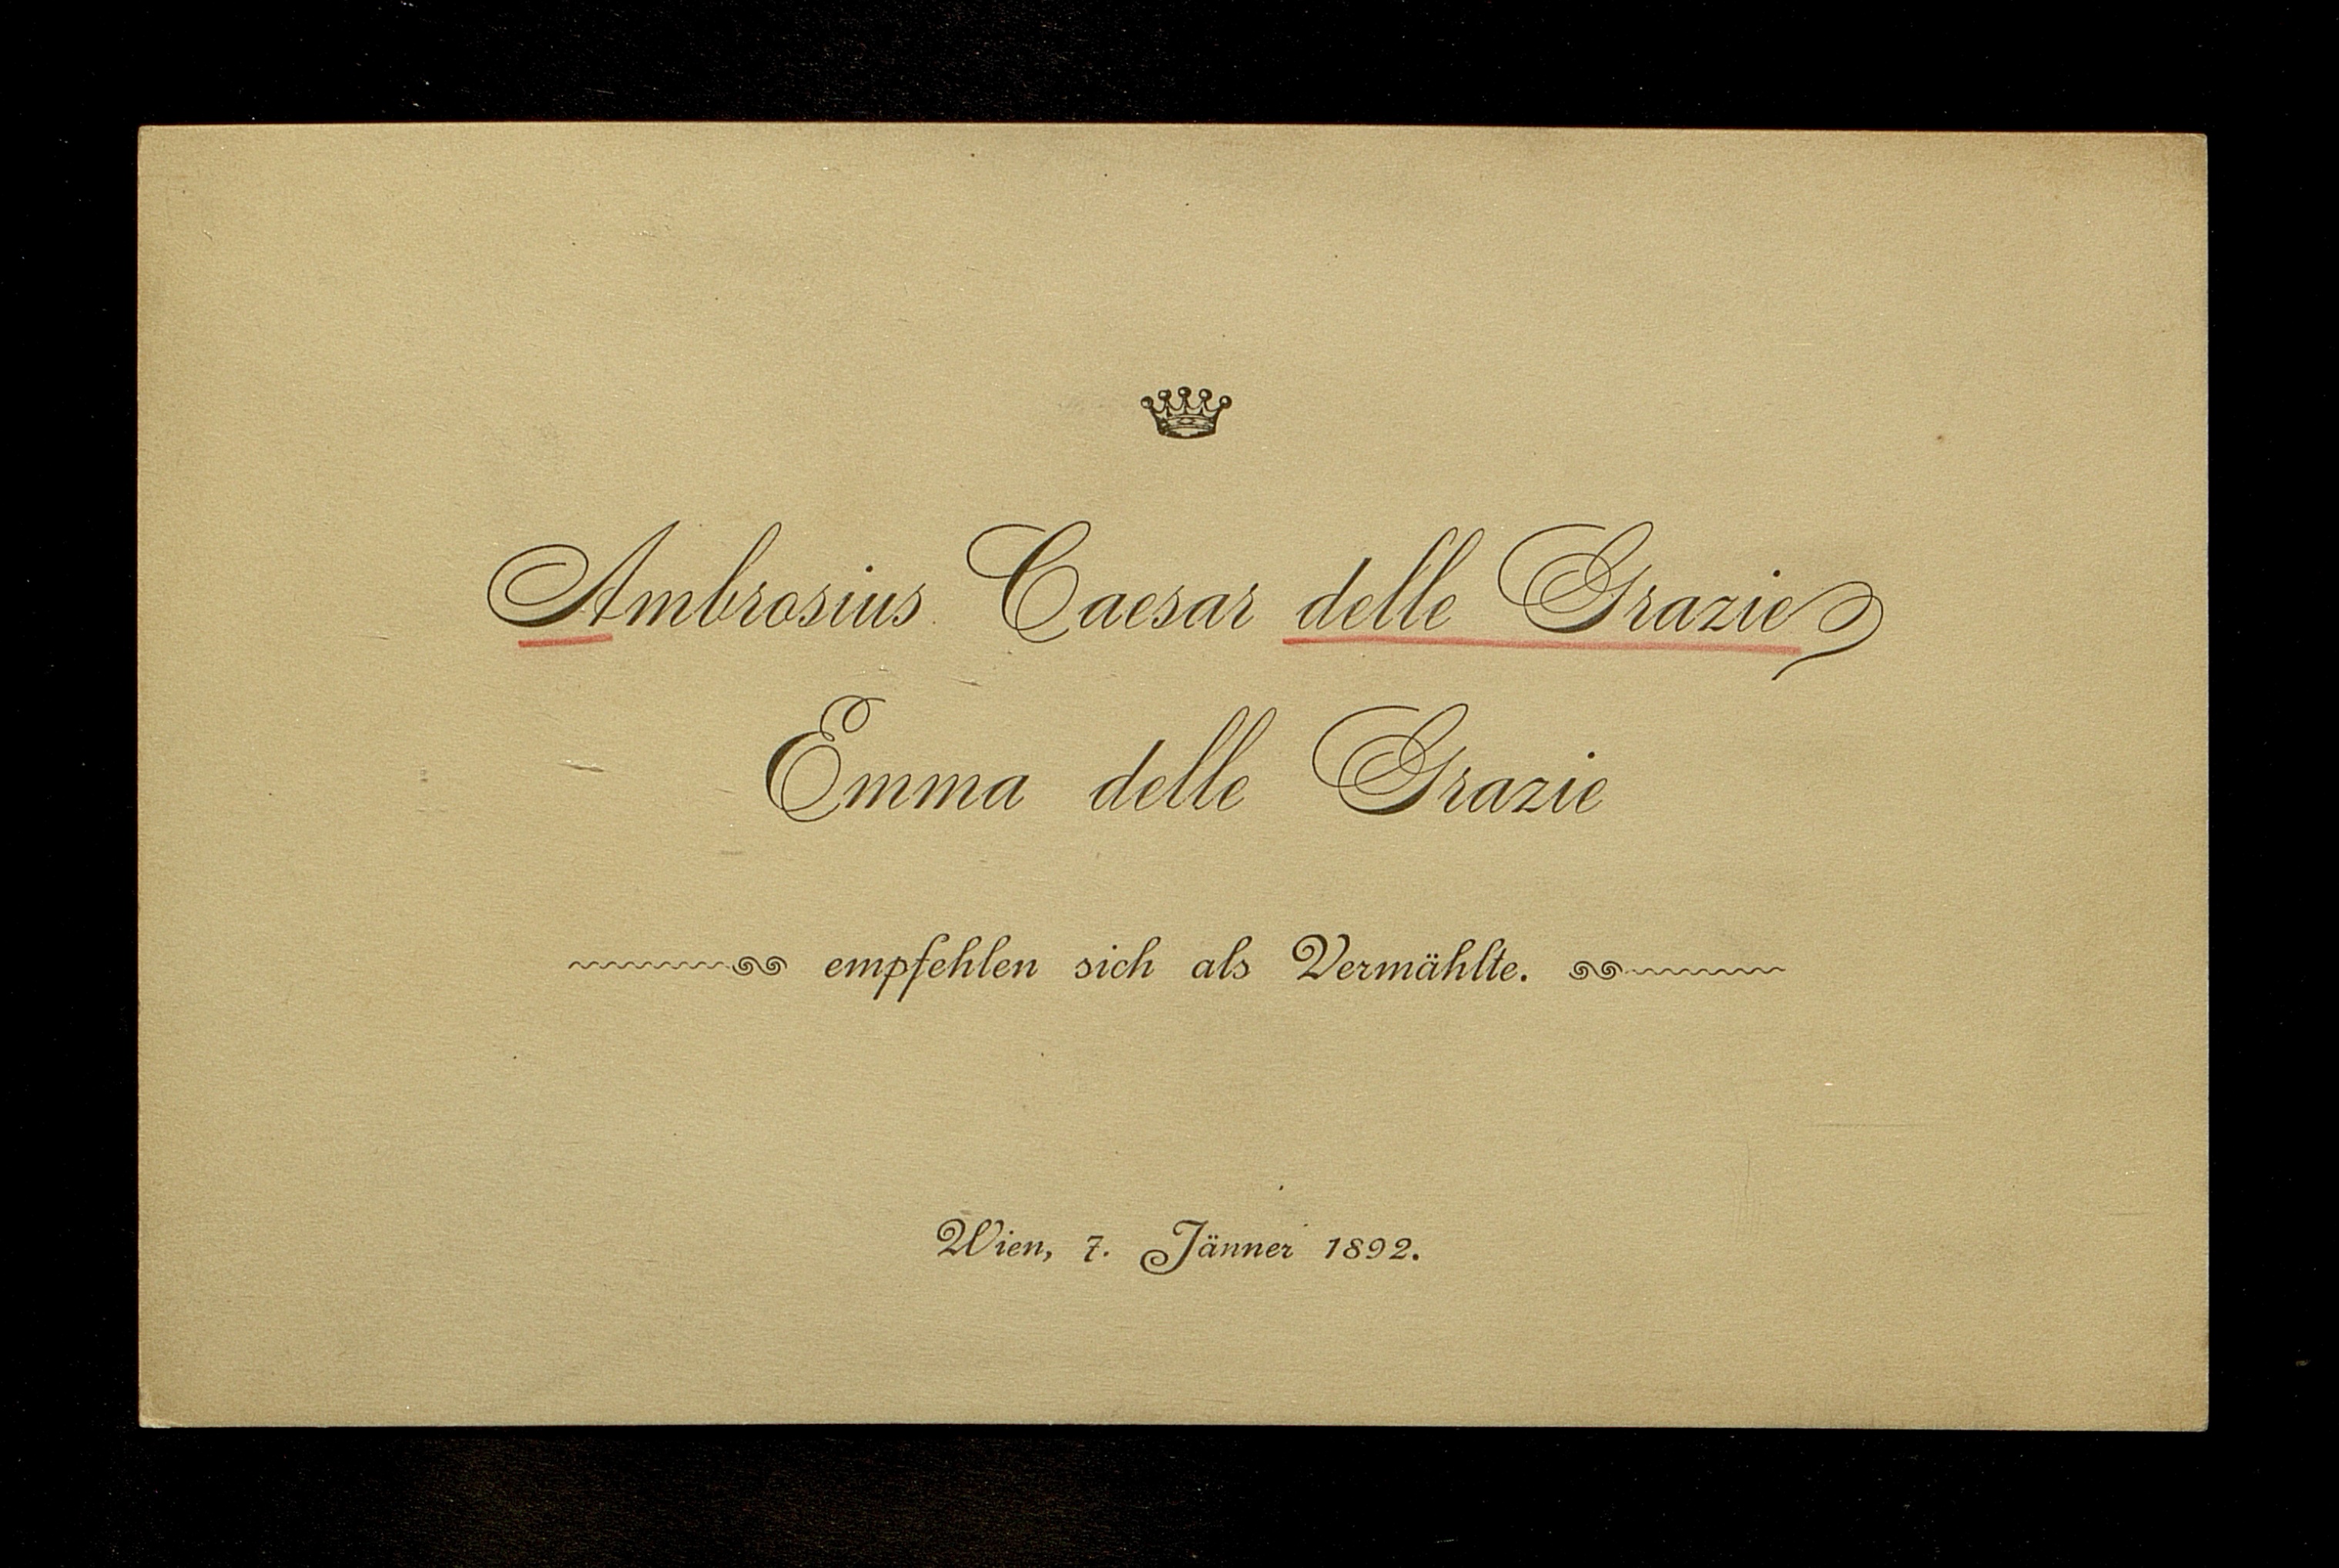 Ambrosius Caesar delle Grazie
Emma delle Grazie
empfehlen sich als Vermählte.
Wien, 7. Jänner 1892.